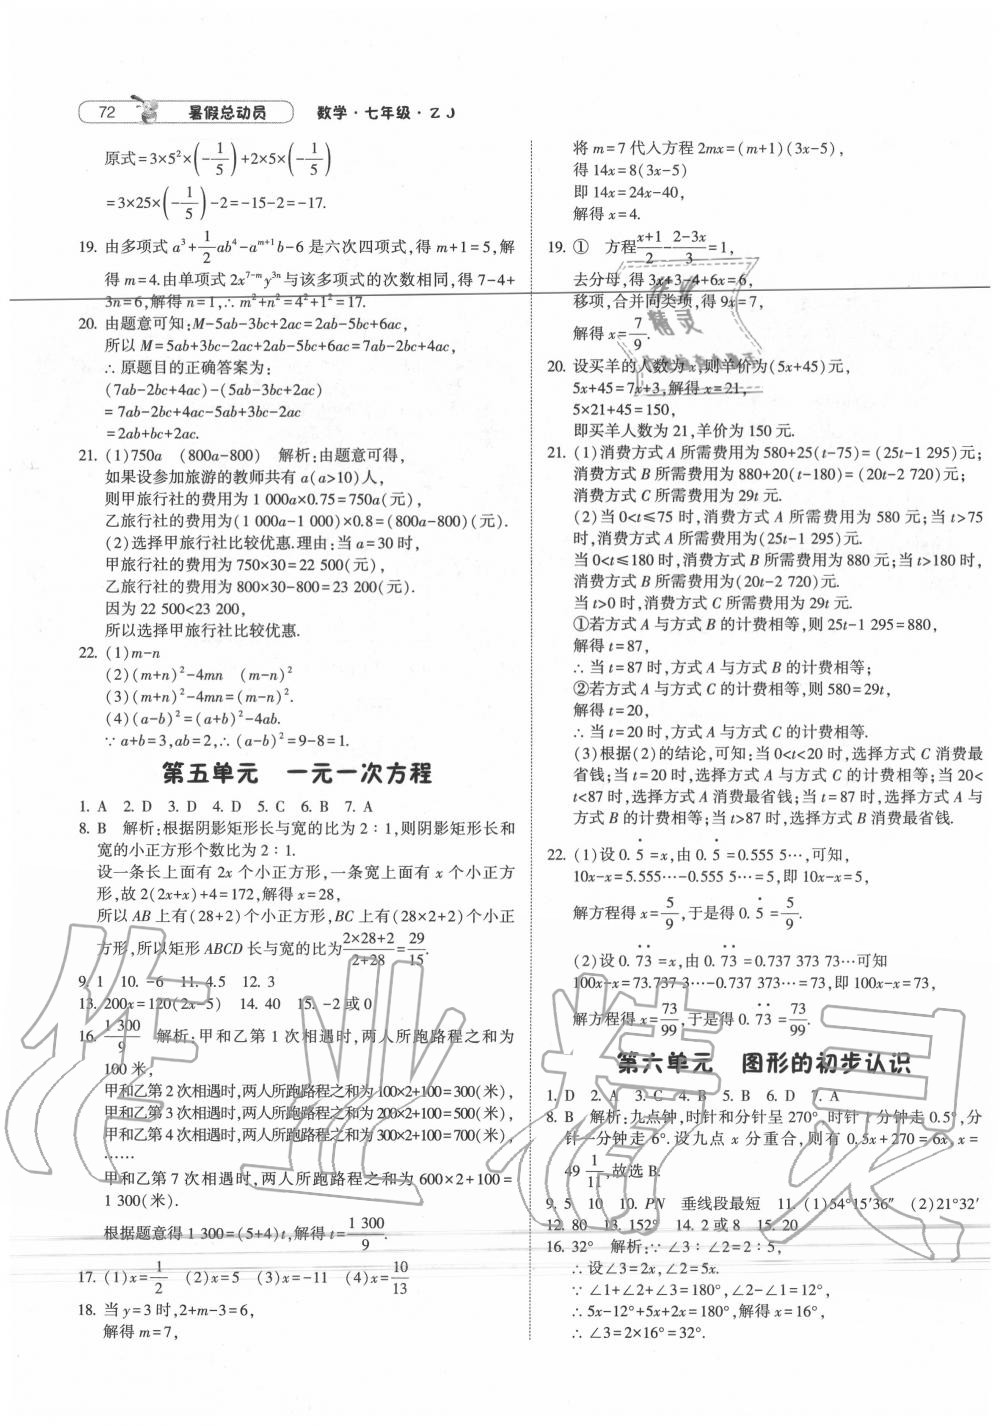 72 暑假总动员 数学·七年级·ZJ
原式=3×5²×(-1/5)+2×5×(-1/5)
=3×25×(-1/5)-2=-15-2=-17.
19. 由多项式 a³+1/2ab⁴-aᵐ⁺¹b-6 是六次四项式,得 m+1=5,解
得 m=4.由单项式 2x⁷⁻ᵐy³ⁿ 与该多项式的次数相同,得 7-4+
3n=6,解得 n=1,∴ m²+n²=4²+1²=17.
20. 由题意可知:M-5ab-3bc+2ac=2ab-5bc+6ac,
所以 M=5ab+3bc-2ac+2ab-5bc+6ac=7ab-2bc+4ac,
∴ 原题目的正确答案为:
(7ab-2bc+4ac)-(5ab-3bc+2ac)
=7ab-2bc+4ac-5ab+3bc-2ac
=2ab+bc+2ac.
21. (1)750a (800a-800) 解析:由题意可得,
如果设参加旅游的教师共有 a(a>10)人,
则甲旅行社的费用为 1 000a×0.75=750a(元),
乙旅行社的费用为(1 000a-1 000)×0.8=(800a-800)(元).
(2)选择甲旅行社比较优惠.理由:当 a=30 时,
甲旅行社的费用为 750×30=22 500(元),
乙旅行社的费用为 800×30-800=23 200(元).
因为 22 500<23 200,
所以选择甲旅行社比较优惠.
22. (1)m-n
(2)(m+n)²-4mn (m-n)²
(3)(m+n)²-4mn=(m-n)².
(4)(a-b)²=(a+b)²-4ab.
∵ a+b=3,ab=2,∴ (a-b)²=9-8=1.
第五单元 一元一次方程
1. A 2. D 3. D 4. D 5. C 6. B 7. A
8. B 解析:根据阴影矩形长与宽的比为 2∶1,则阴影矩形长和
宽的小正方形个数比为 2∶1.
设一条长上面有 2x 个小正方形,一条宽上面有 x 个小正方
形,故 2(2x+x)+4=172,解得 x=28,
所以 AB 上有(28+2)个小正方形,BC 上有(28×2+2)个小正
方形,所以矩形 ABCD 长与宽的比为(2×28+2)/(2+28)=29/15.
9. 1 10. -6 11. 4.5 12. 3
13. 200x=120(2x-5) 14. 40 15. -2或0
16. 1 300/9 解析:甲和乙第 1 次相遇时,两人所跑路程之和为
100 米,
甲和乙第 2 次相遇时,两人所跑路程之和为 100×2+100=300(米),
甲和乙第 3 次相遇时,两人所跑路程之和为 200×2+100=500(米),
甲和乙第 4 次相遇时,两人所跑路程之和为 300×2+100=700(米),
……
甲和乙第 7 次相遇时,两人所跑路程之和为 600×2+100=
1 300(米).
根据题意得 1 300=(5+4)t,解得 t=1 300/9.
17. (1)x=1/2 (2)x=5 (3)x=-11 (4)x=10/13
18. 当 y=3 时,2+m-3=6,
解得 m=7,
将 m=7 代入方程 2mx=(m+1)(3x-5),
得 14x=8(3x-5)
即 14x=24x-40,
解得 x=4.
19. ① 方程(x+1)/2-(2-3x)/3=1,
去分母,得 3x+3-4+6x=6,
移项,合并同类项,得 9x=7,
解得 x=7/9.
20. 设买羊的人数为 x,则羊价为(5x+45)元,
5x+45=7x+3,解得 x=21,
5×21+45=150,
即买羊人数为 21,羊价为 150 元.
21. (1)消费方式 A 所需费用为 580+25(t-75)=(25t-1 295)元;
消费方式 B 所需费用为 880+20(t-180)=(20t-2 720)元;
消费方式 C 所需费用为 29t 元.
(2)当 0<t≤75 时,消费方式 A 所需费用为 580 元;当 t>75
时,消费方式 A 所需费用为(25t-1 295)元.
当 0<t≤180 时,消费方式 B 所需费用为 880 元;当 t>180 时,
消费方式 B 所需费用为(20t-2 720)元.
当 t>0 时,消费方式 C 所需费用为 29t 元.
①若方式 A 与方式 B 的计费相等,则 25t-1 295=880,
解得 t=87,
∴ 当 t=87 时,方式 A 与方式 B 的计费相等;
②若方式 A 与方式 C 的计费相等,则 580=29t,
解得 t=20,
∴ 当 t=20 时,方式 A 与方式 C 的计费相等.
(3)根据(2)的结论,可知:当 0<t<20 时,选择方式 C 消费最
省钱;当 t=20 时,选择方式 A 与方式 C 的计费相等;当 20<
t<87 时,选择方式 A 消费最省钱;当 t=87 时,选择方式 A 与
方式 B 的计费相等;当 t>87 时,选择方式 B 消费最省钱.
22. (1)设 0.5̇=x,由 0.5̇=0.555 5…,可知,
10x-x=5.555…-0.555 5…=5,即 10x-x=5,
解方程得 x=5/9,于是得 0.5̇=5/9.
(2)设 0.7̇3̇=x,由 0.7̇3̇=0.737 373 73…可知
100x-x=73.737 3…-0.737 373…=73,即 100x-x=73,
解方程得 x=73/99,于是得 0.7̇3̇=73/99.
第六单元 图形的初步认识
1. D 2. A 3. C 4. B 5. B 6. D 7. A
8. B 解析:九点钟,时针和分针呈 270°,时针 1 分钟走 0.5°,分
针一分钟走 6°.设九点 x 分重合,则有 0.5x+270=6x,x=
49 1/11,故选 B.
9. 5 10 10. PN 垂线段最短 11. (1)54°15′36″ (2)21°32′
12. 80 13. 152° 14. 2 或 8 15. 20
16. 32° 解析:∵ ∠3∶∠2=2∶5,
∴ 设∠3=2x,∠2=5x.
∵ ∠1+∠2+∠3=180°,∠2-∠1=12°,
∴ 5x-12°+5x+2x=180°,解得 x=16°,
∴ ∠3=2×16°=32°.
作业精灵